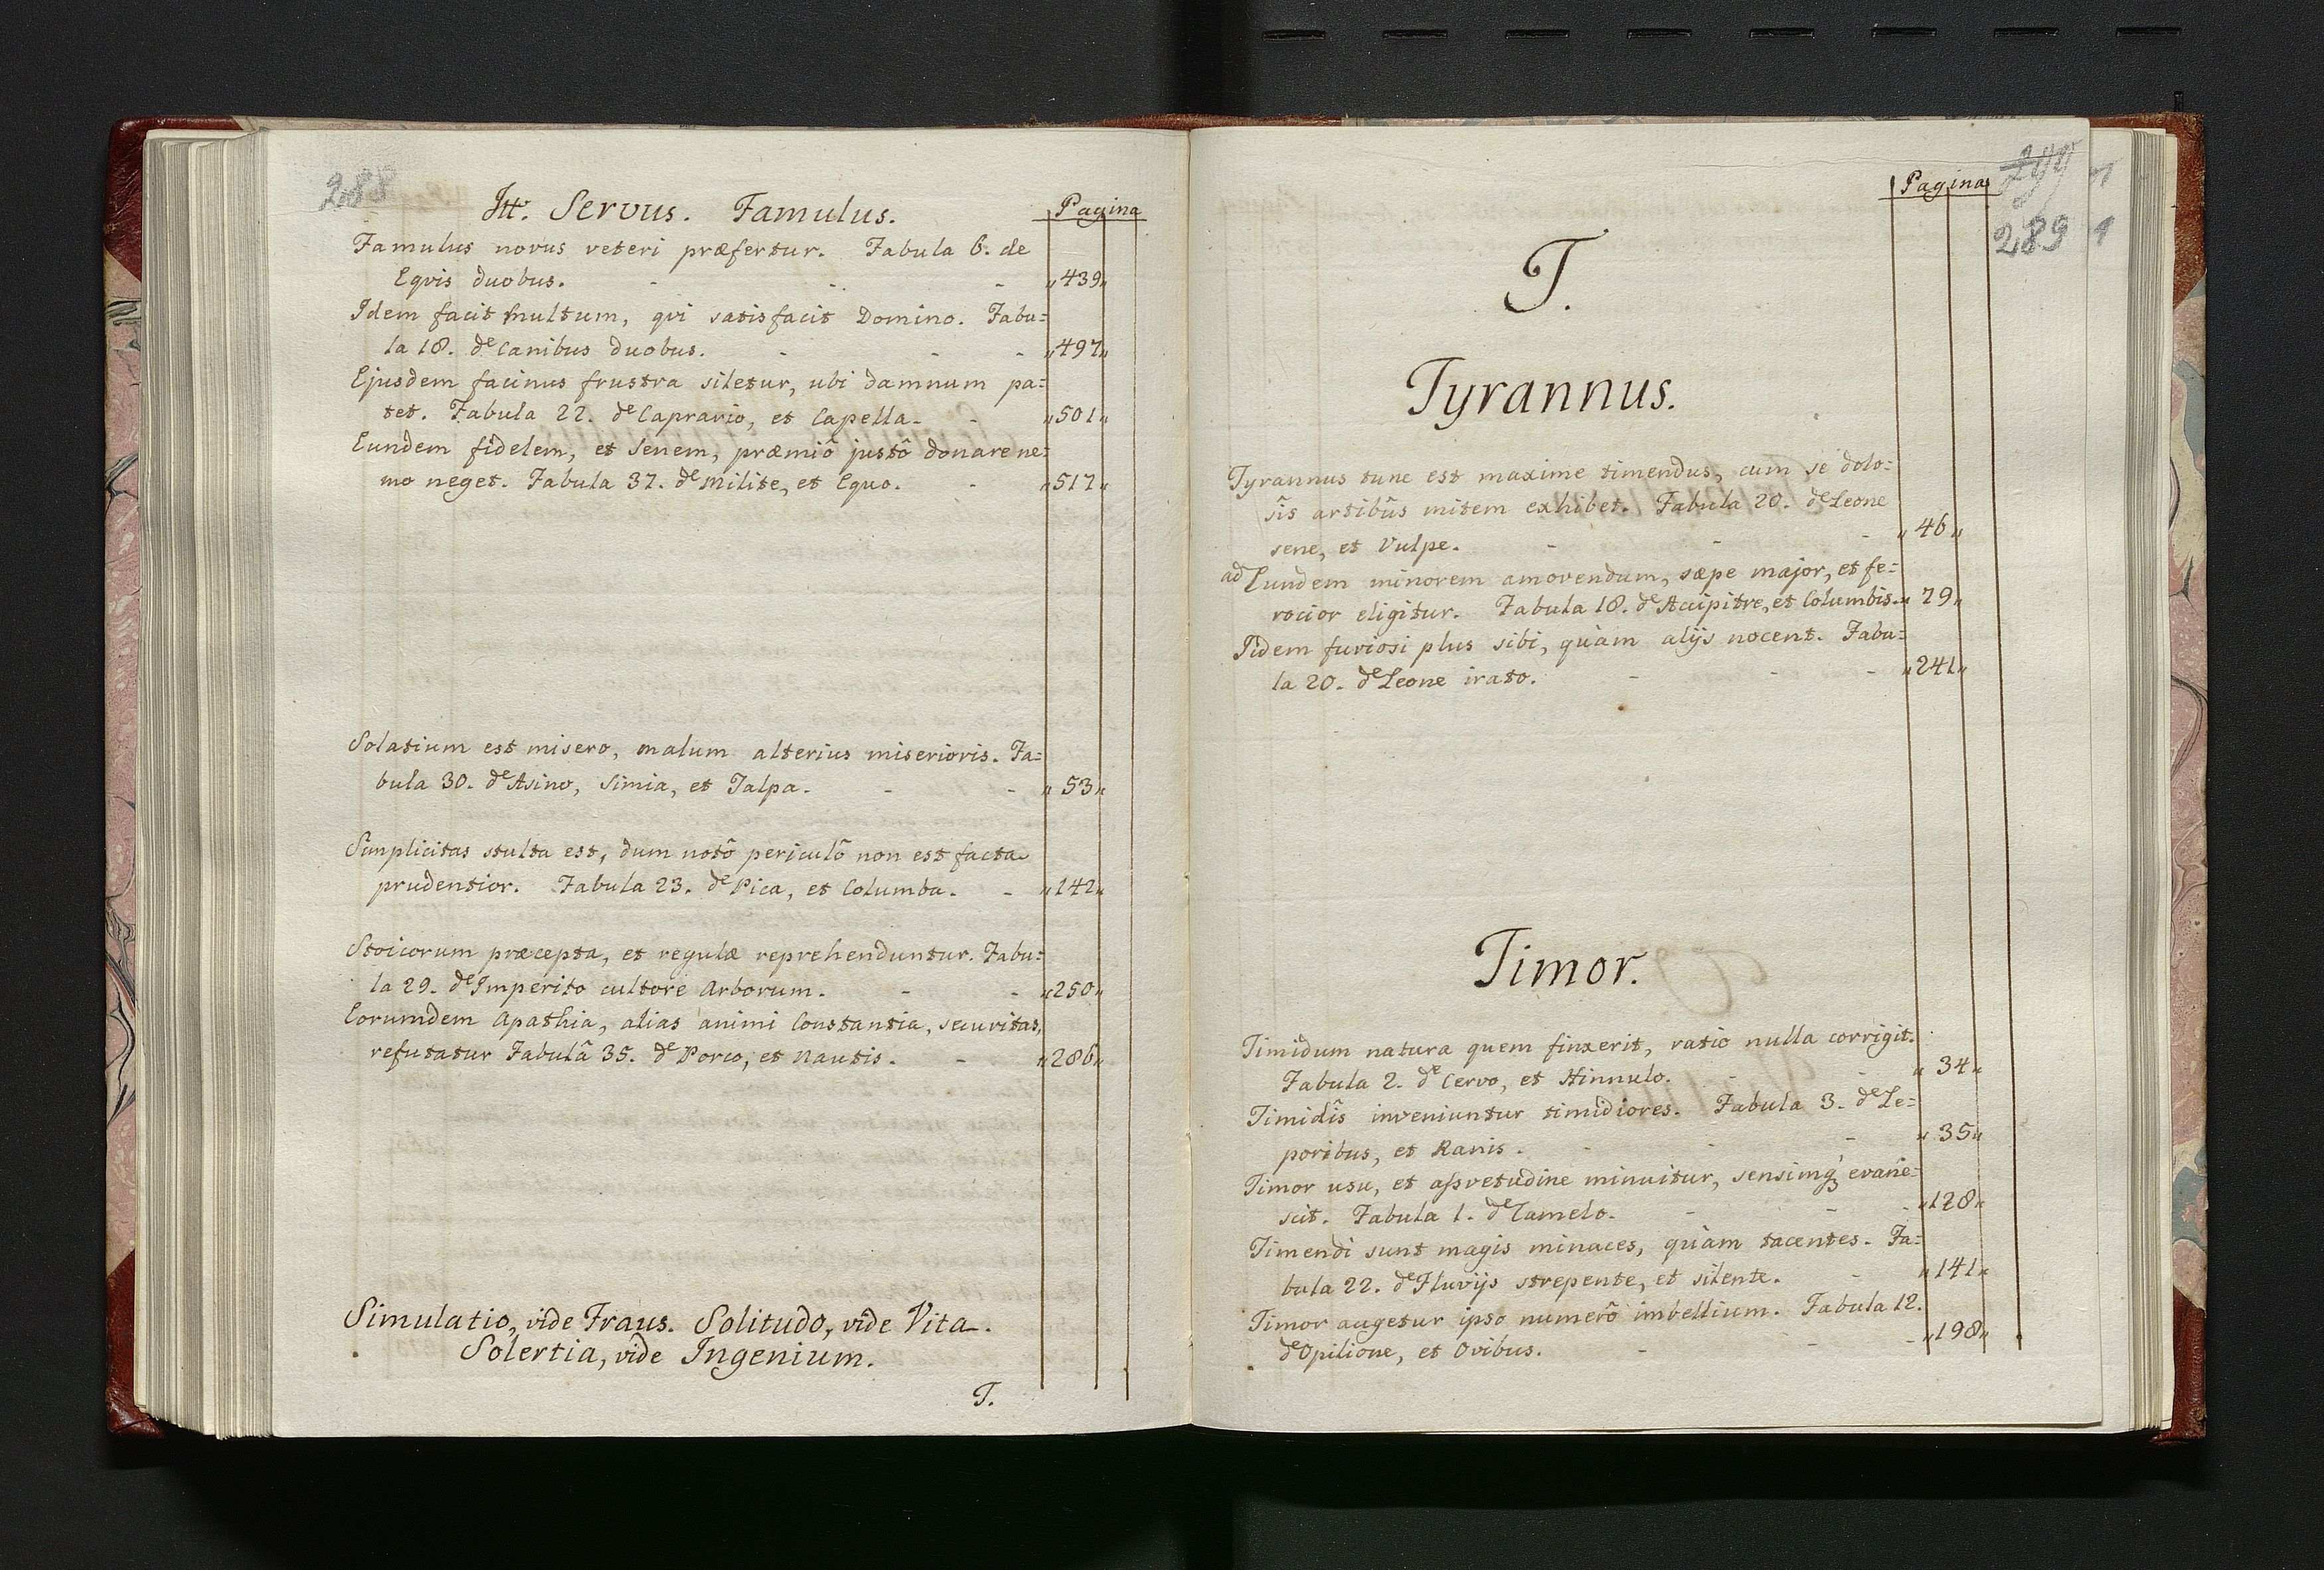 288
Itt. Servus. Famulus.
Pagina
Famulus novus veteri præfertur. Fabula 6. de
Eqvis duobus. - - - „439„
Idem facit multum, qvi satisfacit Domino. Fabu=
la 18. de Canibus duobus. - - - „497„
Ejusdem facinus frustra siletur, ubi damnum pa=
tet. Fabula 22. de Caprario, et Capella. - „501„
Eundem fidelem, et Senem, præmiô justô donare ne=
mo neget. Fabula 37. de Milite, et Equo. - „517„
Solatium est misero, malum alterius miserioris. Fa=
bula 30. de Asino, Simia, et Talpa. - - „53„
Simplicitas stulta est, dum notô periculô non est facta
prudentior. Fabula 23. de Pica, et Columba. - „142„
Stoicorum præcepta, et regulæ reprehenduntur. Fabu=
la 29. de Imperito cultore Arborum. - - „250„
Eorumdem Apathia, alias animi Constantia, securitas,
refutatur Fabulâ 35. de Porco, et Nautis. - „286„
Simulatio, vide Fraus. Solitudo, vide Vita.
Solertia, vide Ingenium.
T.
Pagina
289
T.
Tyrannus.
Tyrannus tunc est maxime timendus, cum se dolo=
sîs artibûs mitem exhibet. Fabula 20. de Leone
sene, et Vulpe. - - - „46„
ad Eundem minorem amovendum, sæpe major, et fe=
rocior eligitur. Fabula 18. de Accipitre, et Columbis. „79„
Iidem furiosi plus sibi, quàm alijs nocent. Fabu=
la 20. de Leone irato. - - - „241„
Timor.
Timidum natura quem finxerit, ratio nulla corrigit.
Fabula 2. de Cervo, et Hinnulo. - - „34„
Timidîs inveniuntur timidiores. Fabula 3. de Le=
poribus, et Ranis. - - - „35„
Timor usu, et assvetudine minuitur, sensimq3 evane=
scit. Fabula 1. de Camelo. - - - „128„
Timendi sunt magis minaces, quàm tacentes. Fa=
bula 22. de Fluvijs strepente, et silente. - „141„
Timor augetur ipso numerô imbellium. Fabula 12.
de Opilione, et Ovibus. - - - „198„